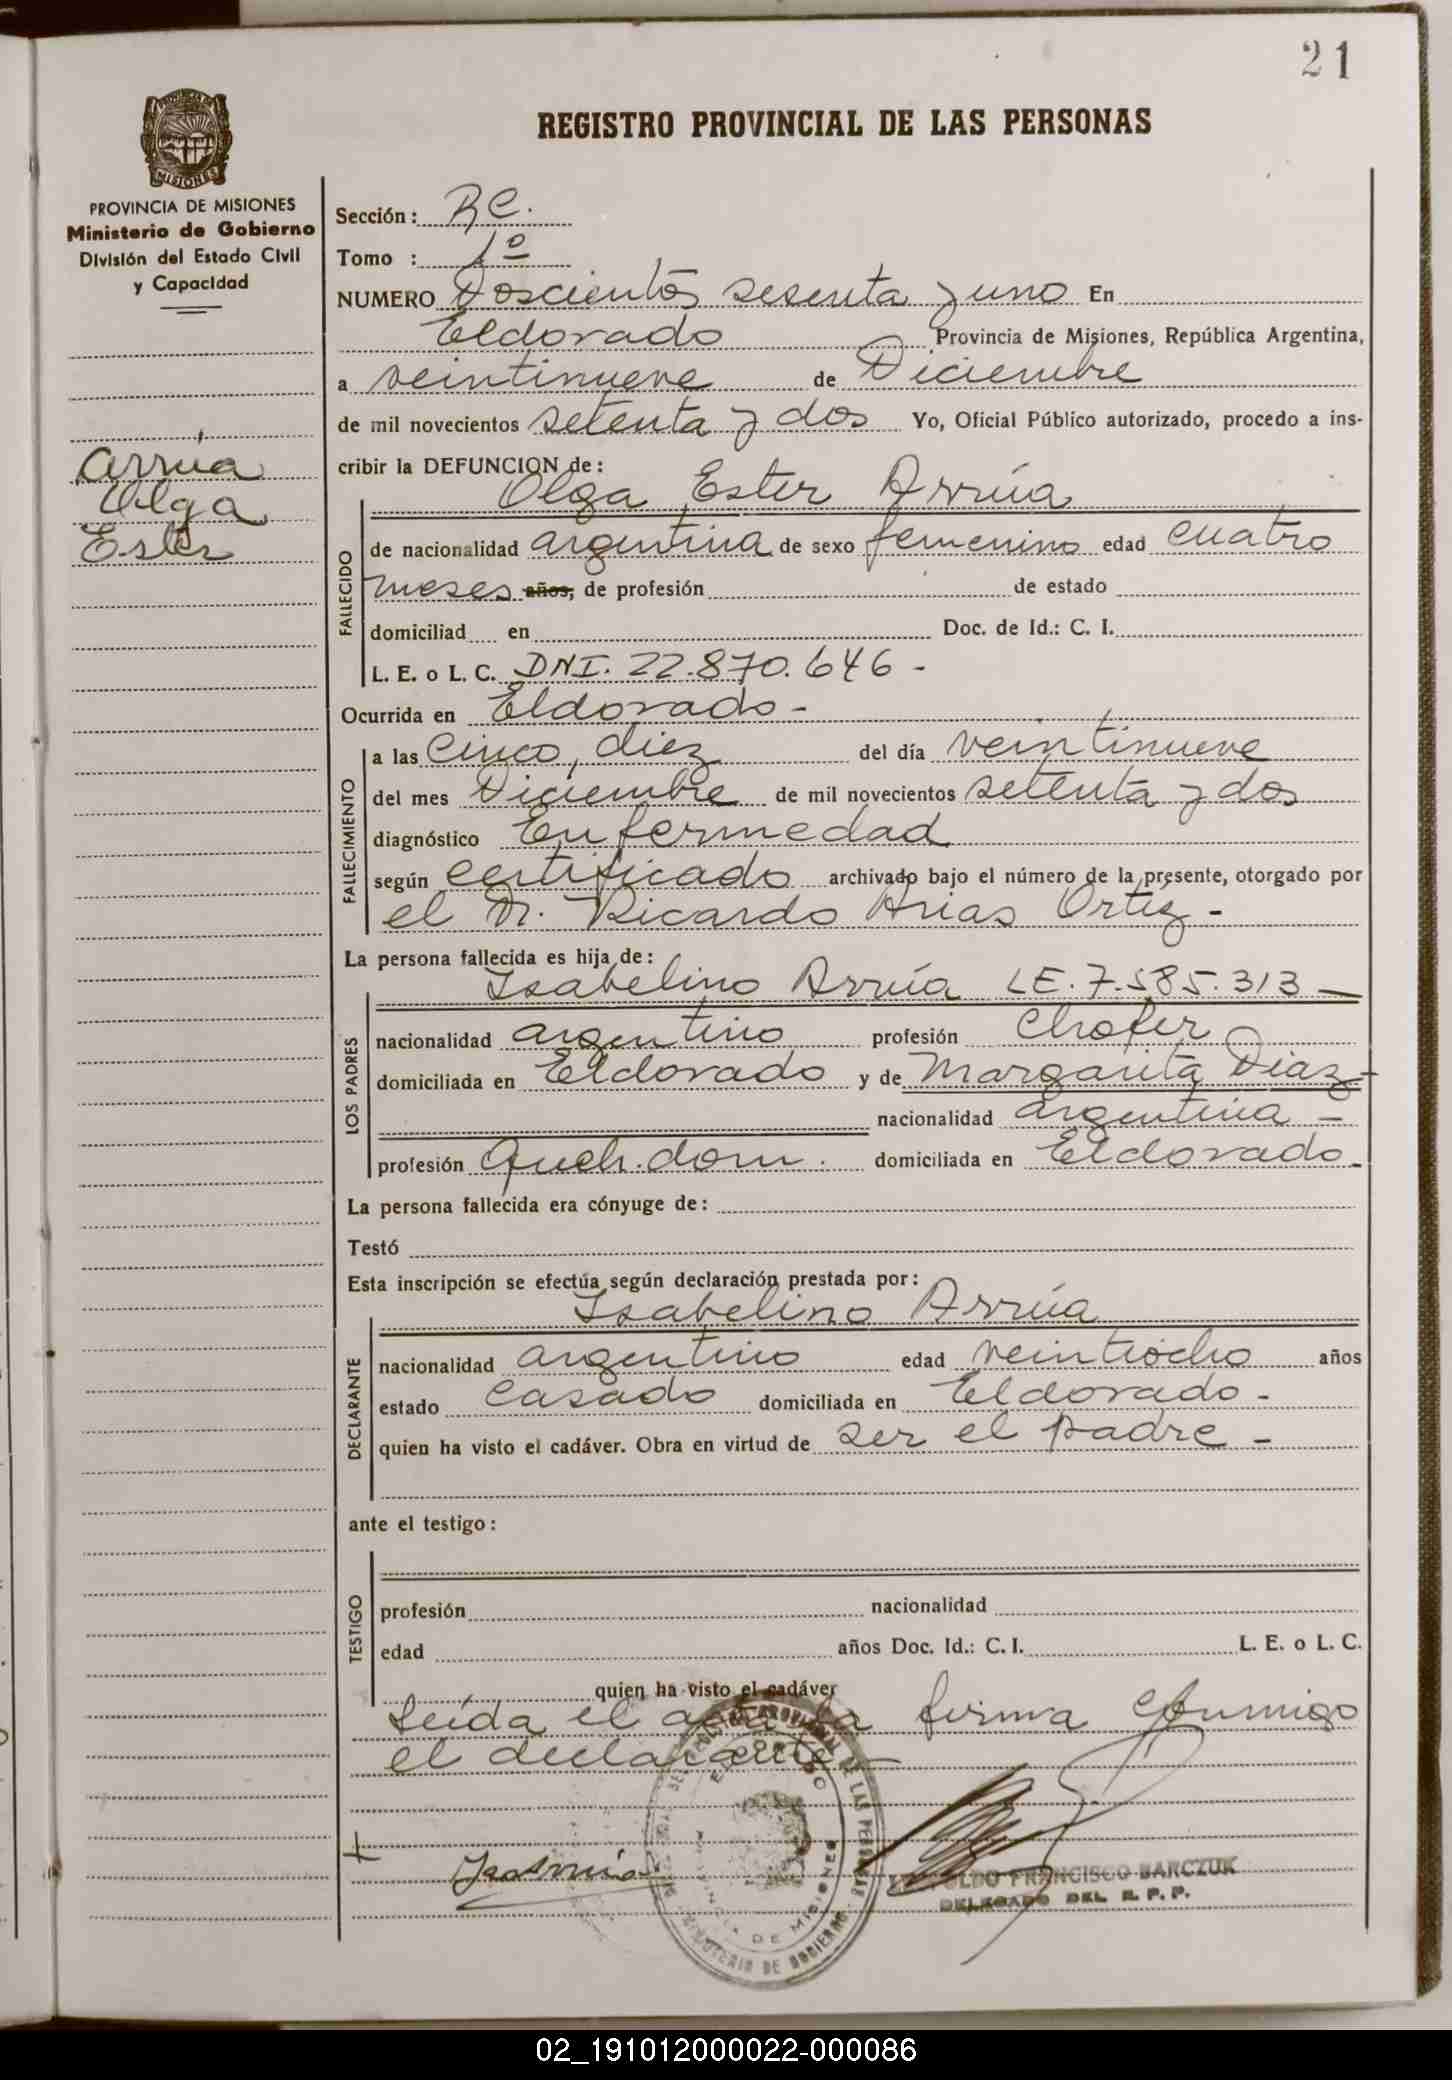 21
REGISTRO PROVINCIAL DE LAS PERSONAS
PROVINCIA DE MISIONES
Ministerio de Gobierno
División del Estado Civil
y Capacidad
Arrúa
Olga
Ester
Sección: RC.
Tomo : 1º
NUMERO Doscientos sesenta y uno En
Eldorado Provincia de Misiones, República Argentina,
a veintinueve de Diciembre
de mil novecientos setenta y dos Yo, Oficial Público autorizado, procedo a ins-
cribir la DEFUNCION de:
Olga Ester Arrúa
FALLECIDO
de nacionalidad argentina de sexo femenino edad cuatro
meses años, de profesión de estado
domiciliad en Doc. de Id.: C. I.
L. E. o L. C. DNI. 22.870.646 -
Ocurrida en Eldorado -
FALLECIMIENTO
a las Cinco, diez del día veintinueve
del mes Diciembre de mil novecientos setenta y dos
diagnóstico Enfermedad
según certificado archivado bajo el número de la presente, otorgado por
el Dr. Ricardo Arias Ortiz -
La persona fallecida es hija de:
Isabelino Arrúa LE. 7.585.313 -
LOS PADRES
nacionalidad argentino profesión Chofer
domiciliada en Eldorado y de Margarita Diaz -
nacionalidad argentina -
profesión Queh. dom. domiciliada en Eldorado -
La persona fallecida era cónyuge de:
Testó
Esta inscripción se efectúa según declaración prestada por:
Isabelino Arrúa
DECLARANTE
nacionalidad argentino edad veintiocho años
estado Casado domiciliada en Eldorado -
quien ha visto el cadáver. Obra en virtud de ser el padre -
ante el testigo:
TESTIGO
profesión nacionalidad
edad años Doc. Id.: C. I. L. E. o L. C.
quien ha visto el cadáver
Leída el acta la firma conmigo
el declarante
FRANCISCO BARCZUK
DELEGADO DEL R. P. P.
02_191012000022-000086